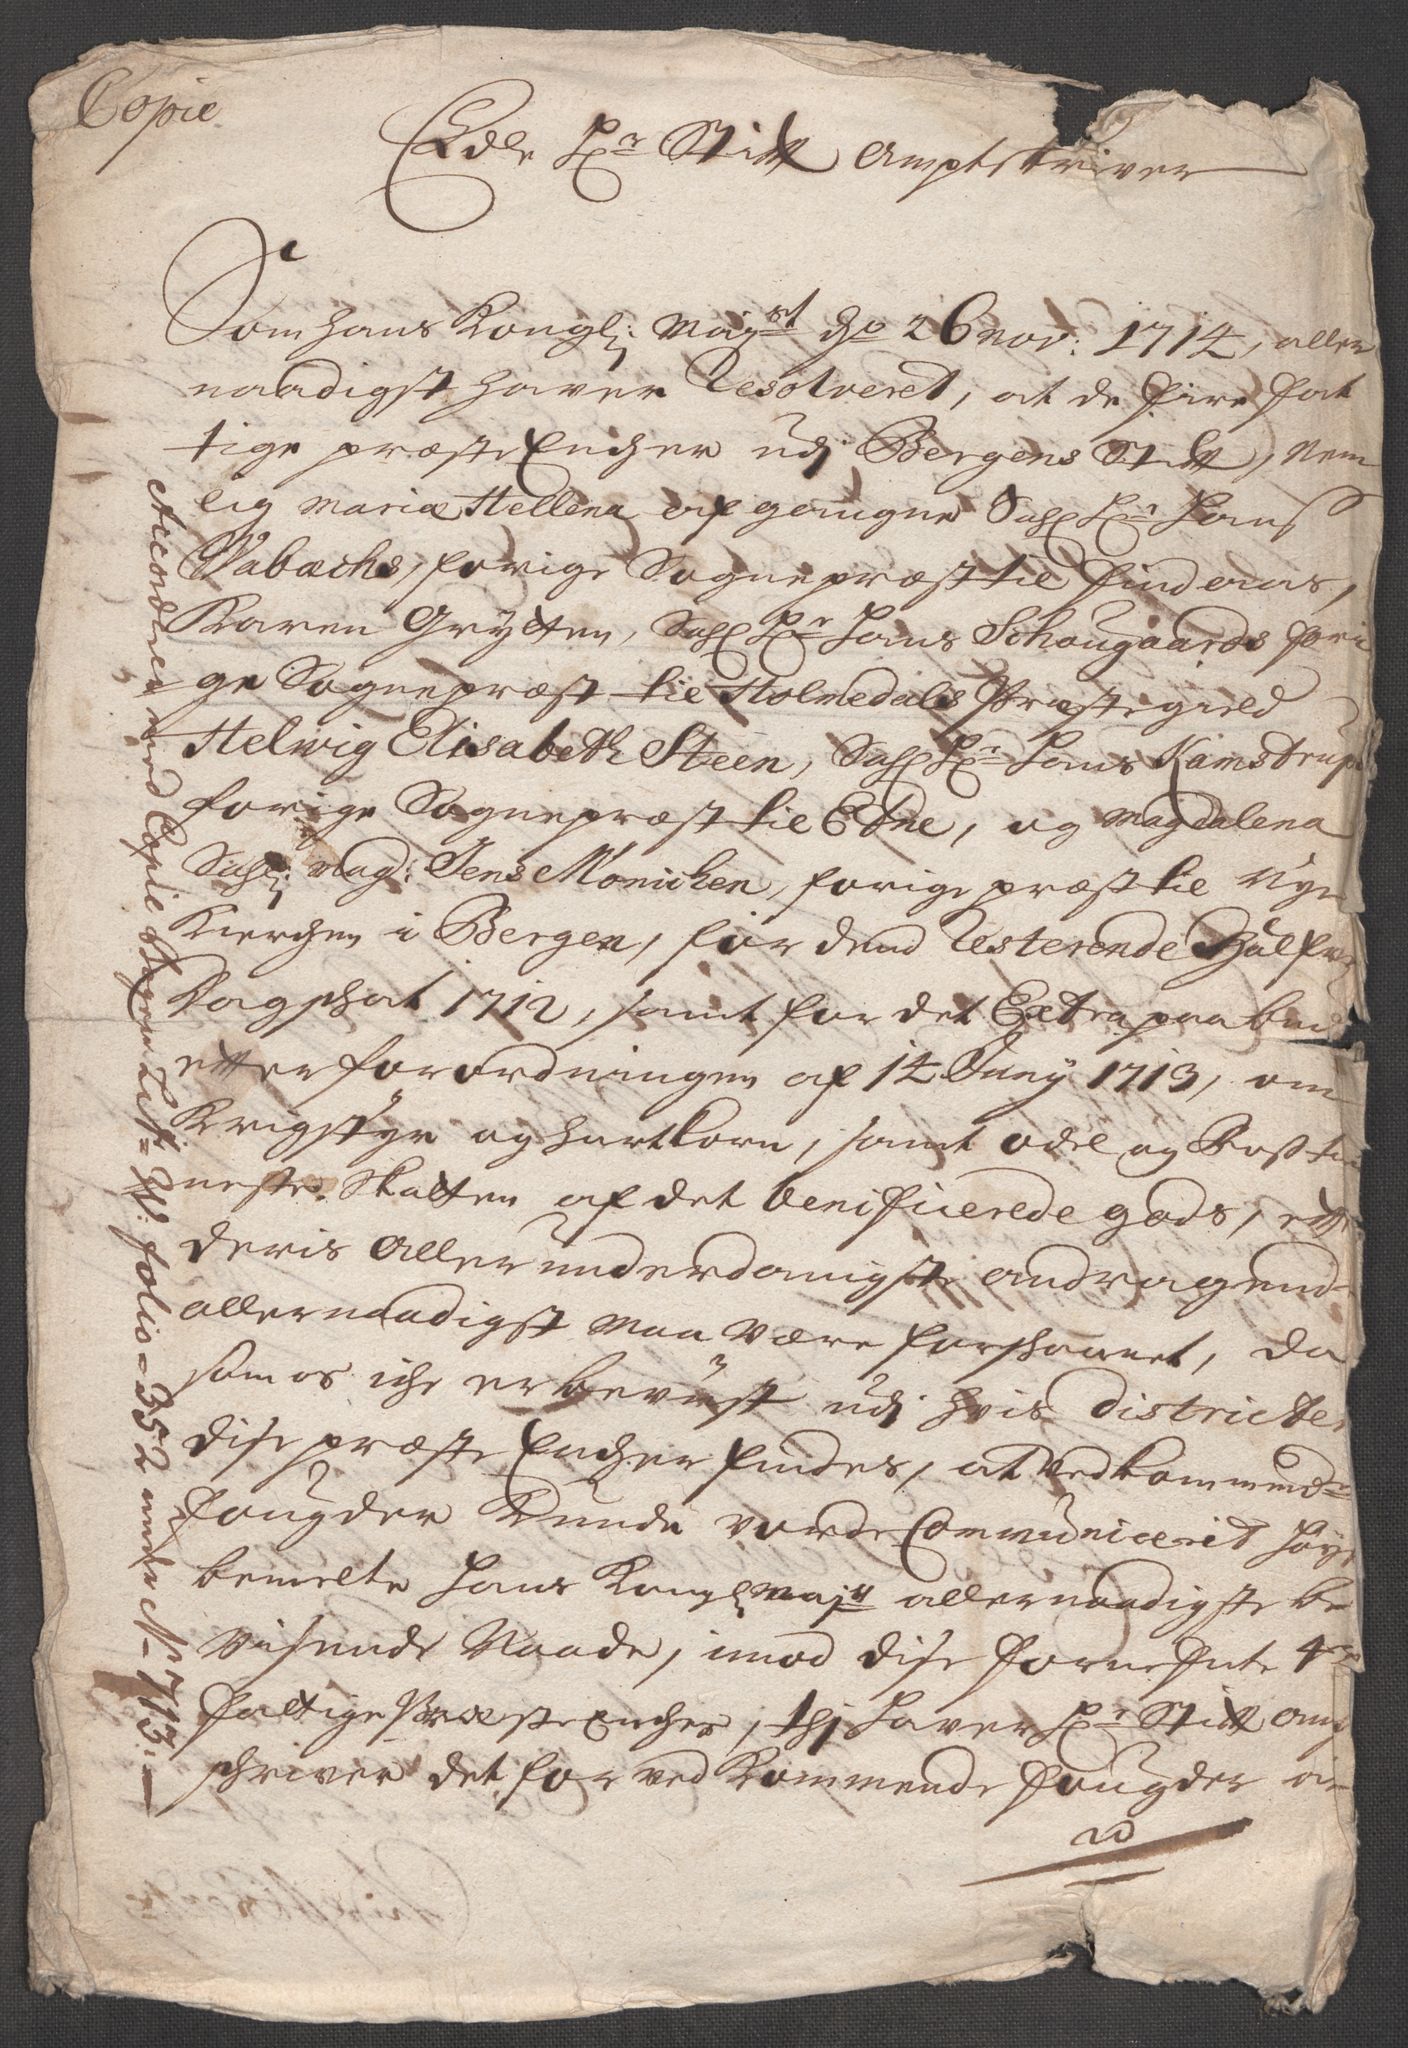 Copie
Edle Hr Stift Amptskriver
Som hans Kongl: Mayst dn 26 Nov: 1714, aller
naadigst haver Resolveret, at de fire fat
tige præste Encher udj Bergens Stift, Nem
lig Maria Hellena afgangne Sahl Hr Hans
Wabachs, forige Sognepræst til Findaas,
Karen Grytten, Sahl Hr Hans Schougaards fori
ge Sognepræst til Holmedals Præstegield
Helwig Elisabeth Steen, Sahl Hr Hans Kamstrups
forige Sognepræst til Edne, og Magdalena
Sahl: Mag: Jens Monichen, forige præst til Nye
Kierchen i Bergen, for dend Resterende Half
Dagschat 1712, samt for det Extra paabud
etter forordningen af 14 Juny 1713, om
Krigstyr og hartkorn, samt odel og Rostie
neste Skatten af det benificerede gods, ett
deris allerunderdanigste andragende
allernaadigst maa være forschaanet, da
som os iche er bevüst udj hvis districter
dise præste Encher findes, at vedkommende
fougder kunde vorde Communicerit høy
bemelte Hans Kongl Majst allernaadigste be
visende Naade, imod dise fornefnte 4re
fattige Præste Encher, thj haver Hr Stift Amt
schriver det for ved Kommende fougder an
Accorderer med Copie Bogen Litr: W: folio = 352 under N: 713: